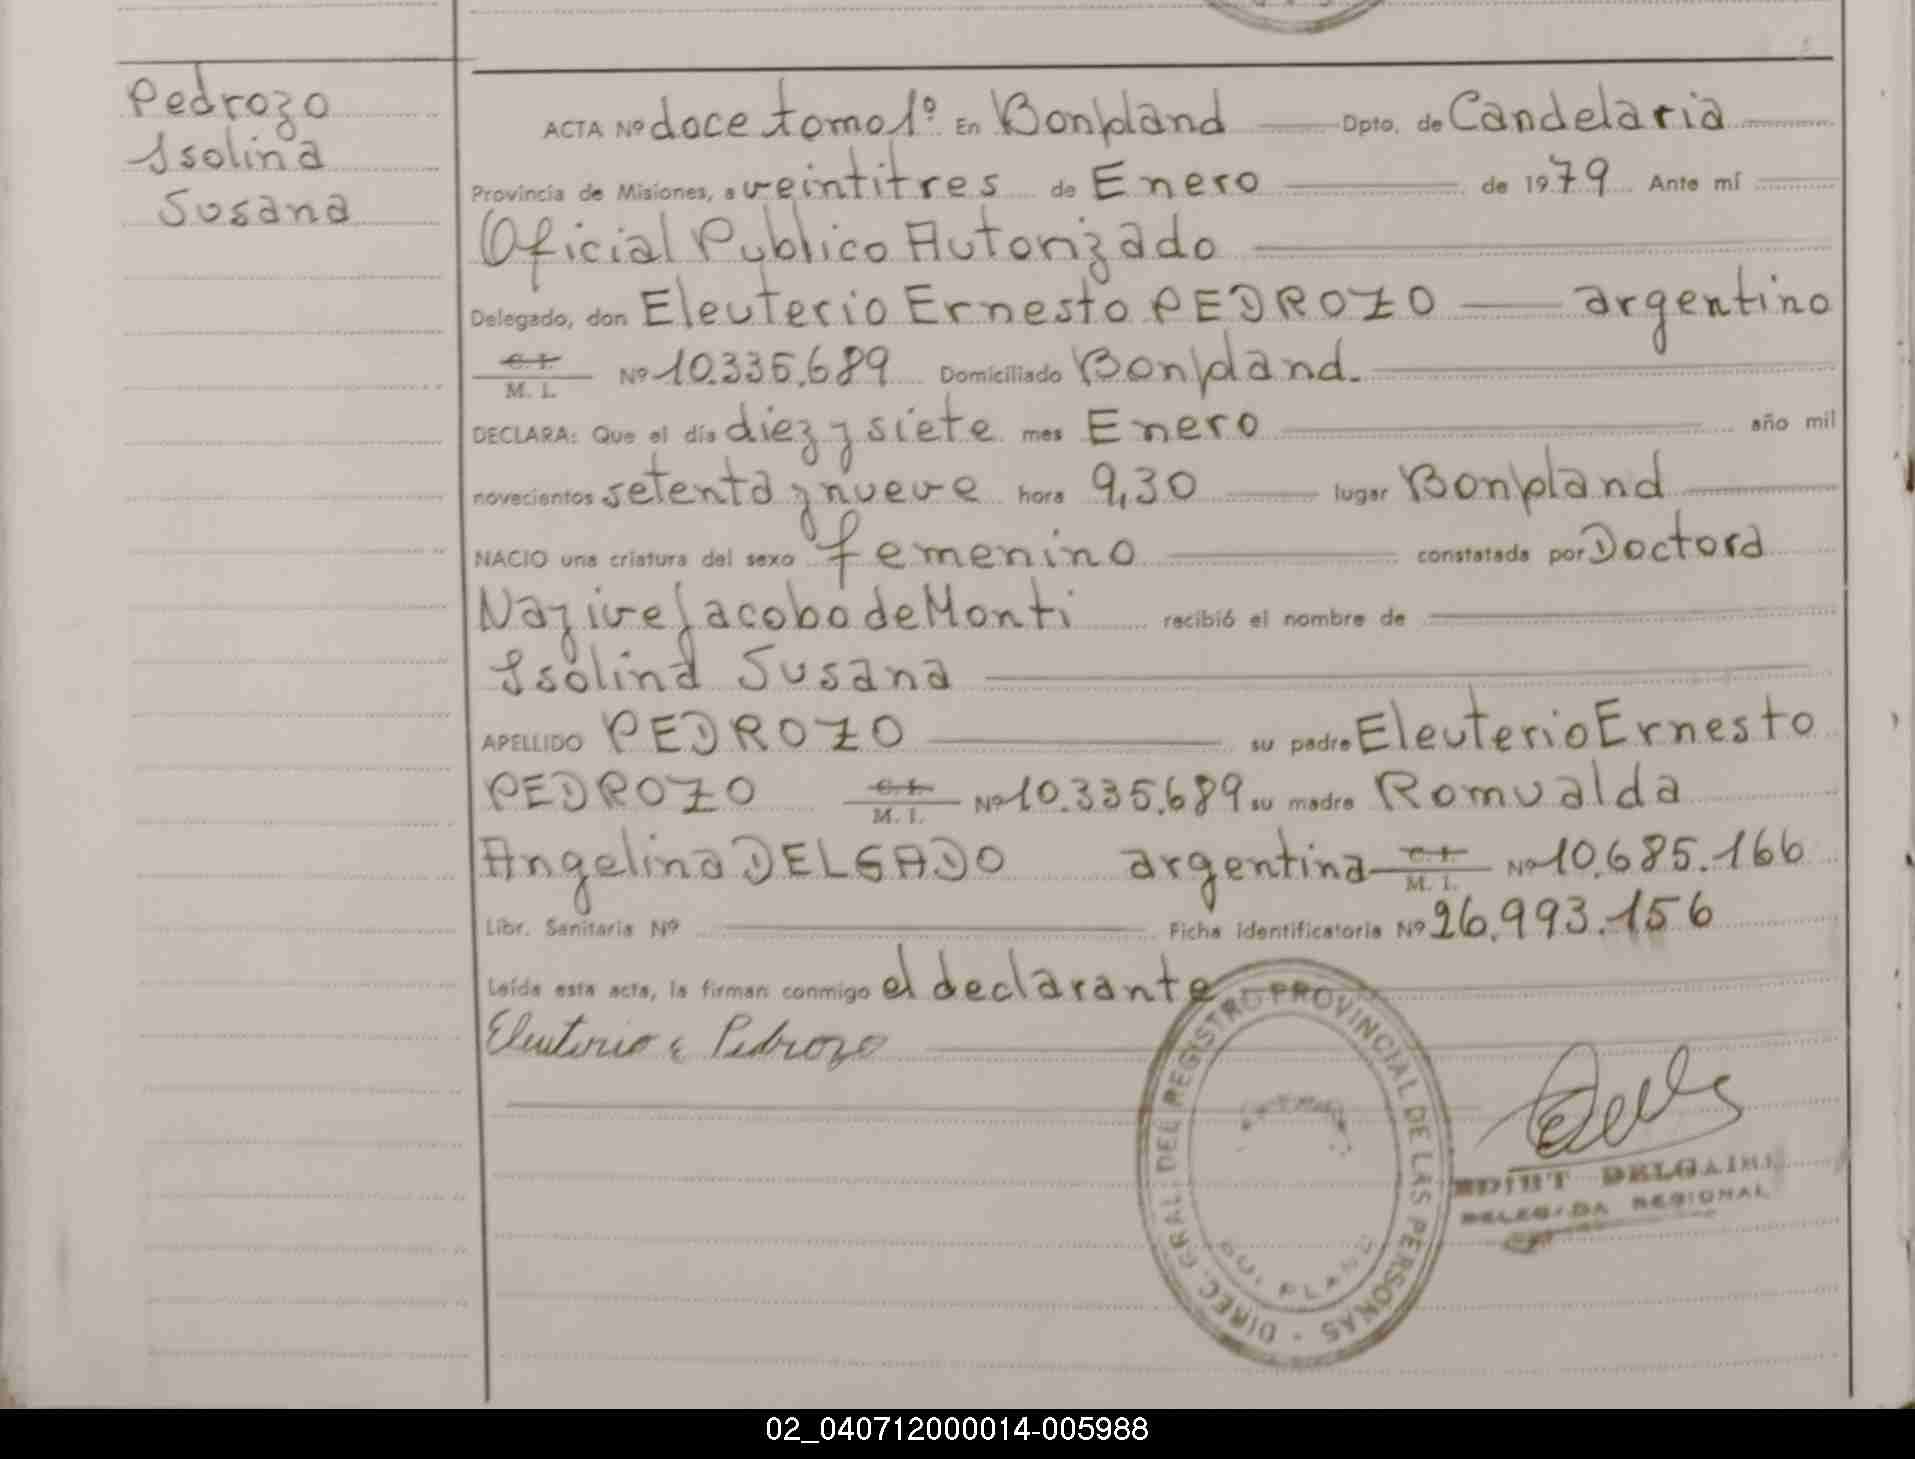 Pedrozo
Isolina
Susana
ACTA Nº doce tomo 1º En Bonpland Dpto. de Candelaria
Provincia de Misiones, a veintitres de Enero de 1979 Ante mí
Oficial Publico Autorizado
Delegado, don Eleuterio Ernesto PEDROZO argentino
C. I.
M. I. Nº 10.335.689 Domiciliado Bonpland.
DECLARA: Que el día diez y siete mes Enero año mil
novecientos setenta y nueve hora 9,30 lugar Bonpland
NACIO una criatura del sexo femenino constatada por Doctora
Nazive Jacobo de Monti recibió el nombre de
Isolina Susana
APELLIDO PEDROZO su padre Eleuterio Ernesto
PEDROZO C. I. M. I. Nº 10.335.689 su madre Romualda
Angelina DELGADO argentina C. I. M. I. Nº 10.685.166
Libr. Sanitaria Nº Ficha identificatoria Nº 26.993.156
Leída esta acta, la firman conmigo el declarante
Eleuterio E Pedrozo
DIREC. GRAL. DEL REGISTRO PROVINCIAL DE LAS PERSONAS
DELEGADA REGIONAL
02_040712000014-005988